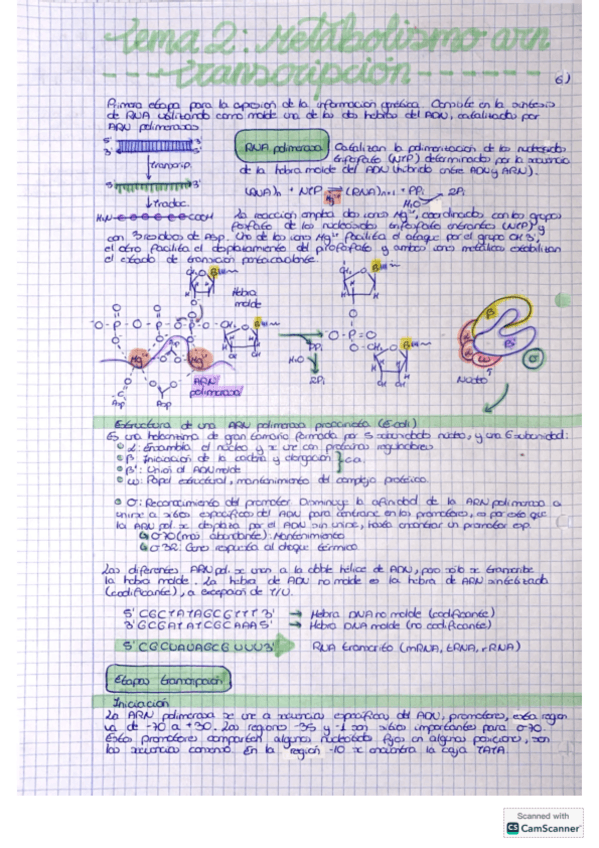 Tema 2: Metabolismo arn
transcripción
6)
Primera etapa para la expresión de la información genética. Consiste en la síntesis
de RNA utilizando como molde una de las dos hebras del ADN, catalizado por
ARN polimerasas
5' 3'
3' 5'
transcrip.
5' 3'
traduc.
H2N COOH
RNA polimerasa
Catalizan la polimerización de los nucleósidos
trifosfato (NTP) determinados por la secuencia
de la hebra molde del ADN (híbrido entre ADN y ARN).
(RNA)n + NTP ⇌ (RNA)n+1 + PPi
Mg²⁺
H2O
2Pi
La reacción emplea dos iones Mg²⁺, coordinados con los grupos
fosfato de los nucleósidos trifosfato entrantes (NTP) y
con 3 residuos de Asp. Uno de los iones Mg²⁺ facilita el ataque por el grupo OH 3',
el otro facilita el desplazamiento del pirofosfato y ambos iones metálicos estabilizan
el estado de transición pentacovalente.
Hebra
molde
Mg²⁺
Mg²⁺
ARN
polimerasa
Asp
Asp
PPi
H2O
2Pi
β
β'
α
ω
σ
Núcleo
Estructura de una ARN polimerasa procariota (E.coli)
Es una holoenzima de gran tamaño formada por 5 subunidades núcleo, y una σ subunidad:
α: Ensambla el núcleo y se une con proteínas reguladoras
β: Iniciación de la cadena y elongación
β': Unión al ADN molde
ca.
ω: Papel estructural, mantenimiento del complejo proteico.
σ: Reconocimiento del promotor. Disminuye la afinidad de la ARN polimerasa a
unirse a sitios específicos del ADN para centrarse en los promotores, es por esto que
la ARN pol. se desplaza por el ADN sin unirse, hasta encontrar un promotor esp.
σ70 (más abundante): Mantenimiento
σ32: Como respuesta al choque térmico
Las diferentes ARN pol. se unen a la doble hélice de ADN, pero solo se transcribe
la hebra molde. La hebra de ADN no molde es la hebra de ARN sintetizada
(codificante), a excepción de T/U.
5' CGCTATAGCGTTT 3' → Hebra DNA no molde (codificante)
3' GCGATATCGCAAA 5' → Hebra DNA molde (no codificante)
5' CGCUAUAGCGUUU 3' RNA transcrito (mRNA, tRNA, rRNA)
Etapas transcripción
Iniciación
La ARN polimerasa se une a secuencias específicas del ADN, promotores, esta región
va de -70 a +30. Las regiones -35 y -1 son sitios importantes para σ70.
Estos promotores comparten algunos nucleótidos fijos en algunas posiciones, son
las secuencias consenso. En la región -10 se encuentra la caja TATA.
Scanned with
CS CamScanner